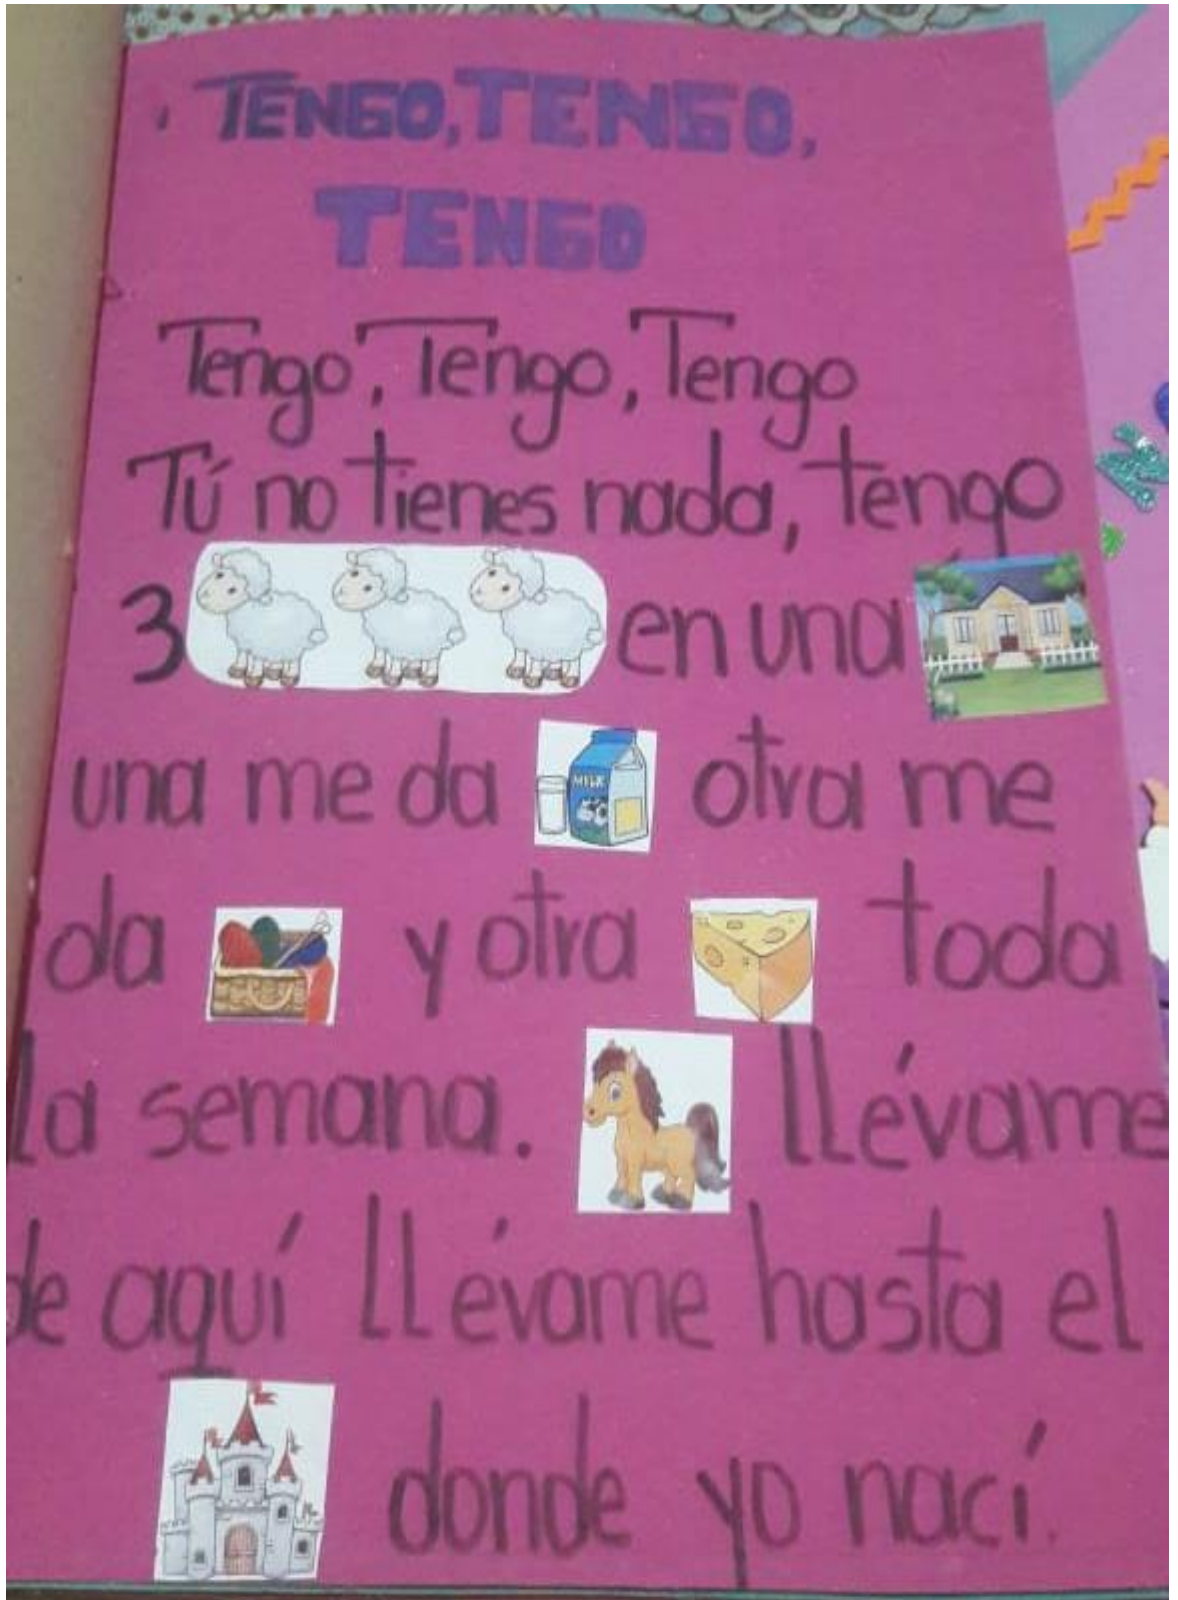 TENGO, TENGO,
TENGO
Tengo, Tengo, Tengo
Tú no tienes nada, tengo
3 en una
una me da MILK otra me
da y otra toda
la semana. llévame
de aquí llévame hasta el
donde yo nací.